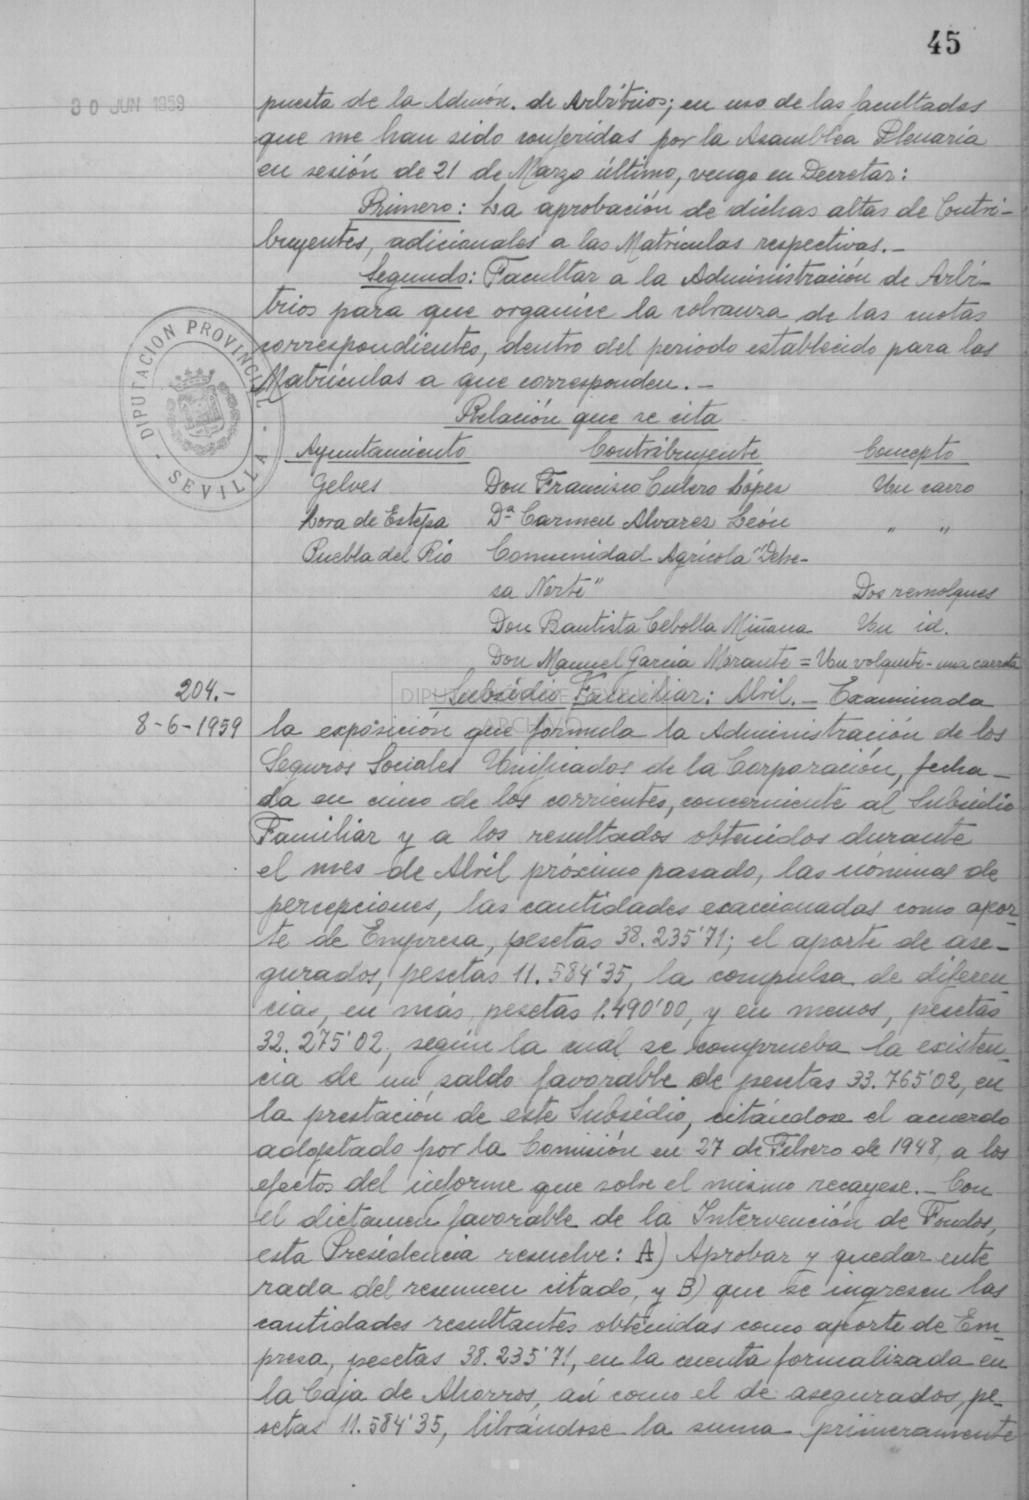 45
30 JUN 1959
puesta de la Admón. de Arbitrios; en uso de las facultades
que me han sido conferidas por la Asamblea Plenaria
en sesión de 21 de Marzo último, vengo en Decretar:
Primero: La aprobación de dichas altas de Contri-
buyentes, adicionales a las Matrículas respectivas.-
Segundo: Facultar a la Administración de Arbi-
trios para que organice la cobranza de las cuotas
correspondientes, dentro del periodo establecido para las
Matrículas a que corresponden.-
DIPUTACION PROVINCIAL - SEVILLA -
Relación que se cita
Ayuntamiento Contribuyente Concepto
Gelves Don Francisco Culero López Un carro
Lora de Estepa Dª Carmen Alvarez León " "
Puebla del Río Comunidad Agrícola "Dehe-
sa Norte" Dos remolques
Don Bautista Cebolla Miñana Un id.
Don Manuel García Morante = Un volquete - una carreta
204.- Subsidio Familiar: Abril.- Examinada
8-6-1959 la exposición que formula la Administración de los
Seguros Sociales Unificados de la Corporación, fecha-
da en cinco de los corrientes, concerniente al Subsidio
Familiar y a los resultados obtenidos durante
el mes de Abril próximo pasado, las nóminas de
percepciones, las cantidades exaccionadas como apor-
te de Empresa, pesetas 38.235'71; el aporte de ase-
gurados, pesetas 11.584'35, la compulsa de diferen-
cias, en más, pesetas 1.490'00, y en menos, pesetas
32.275'02, según la cual se comprueba la existen-
cia de un saldo favorable de pesetas 33.765'02, en
la prestación de este Subsidio, citándose el acuerdo
adoptado por la Comisión en 27 de Febrero de 1948, a los
efectos del informe que sobre el mismo recayese.- Con
el dictamen favorable de la Intervención de Fondos,
esta Presidencia resuelve: A) Aprobar y quedar ente
rada del resumen citado, y B) que se ingresen las
cantidades resultantes obtenidas como aporte de Em-
presa, pesetas 38.235'71, en la cuenta formalizada en
la Caja de Ahorros, así como el de asegurados, pe-
setas 11.584'35, librándose la suma primeramente